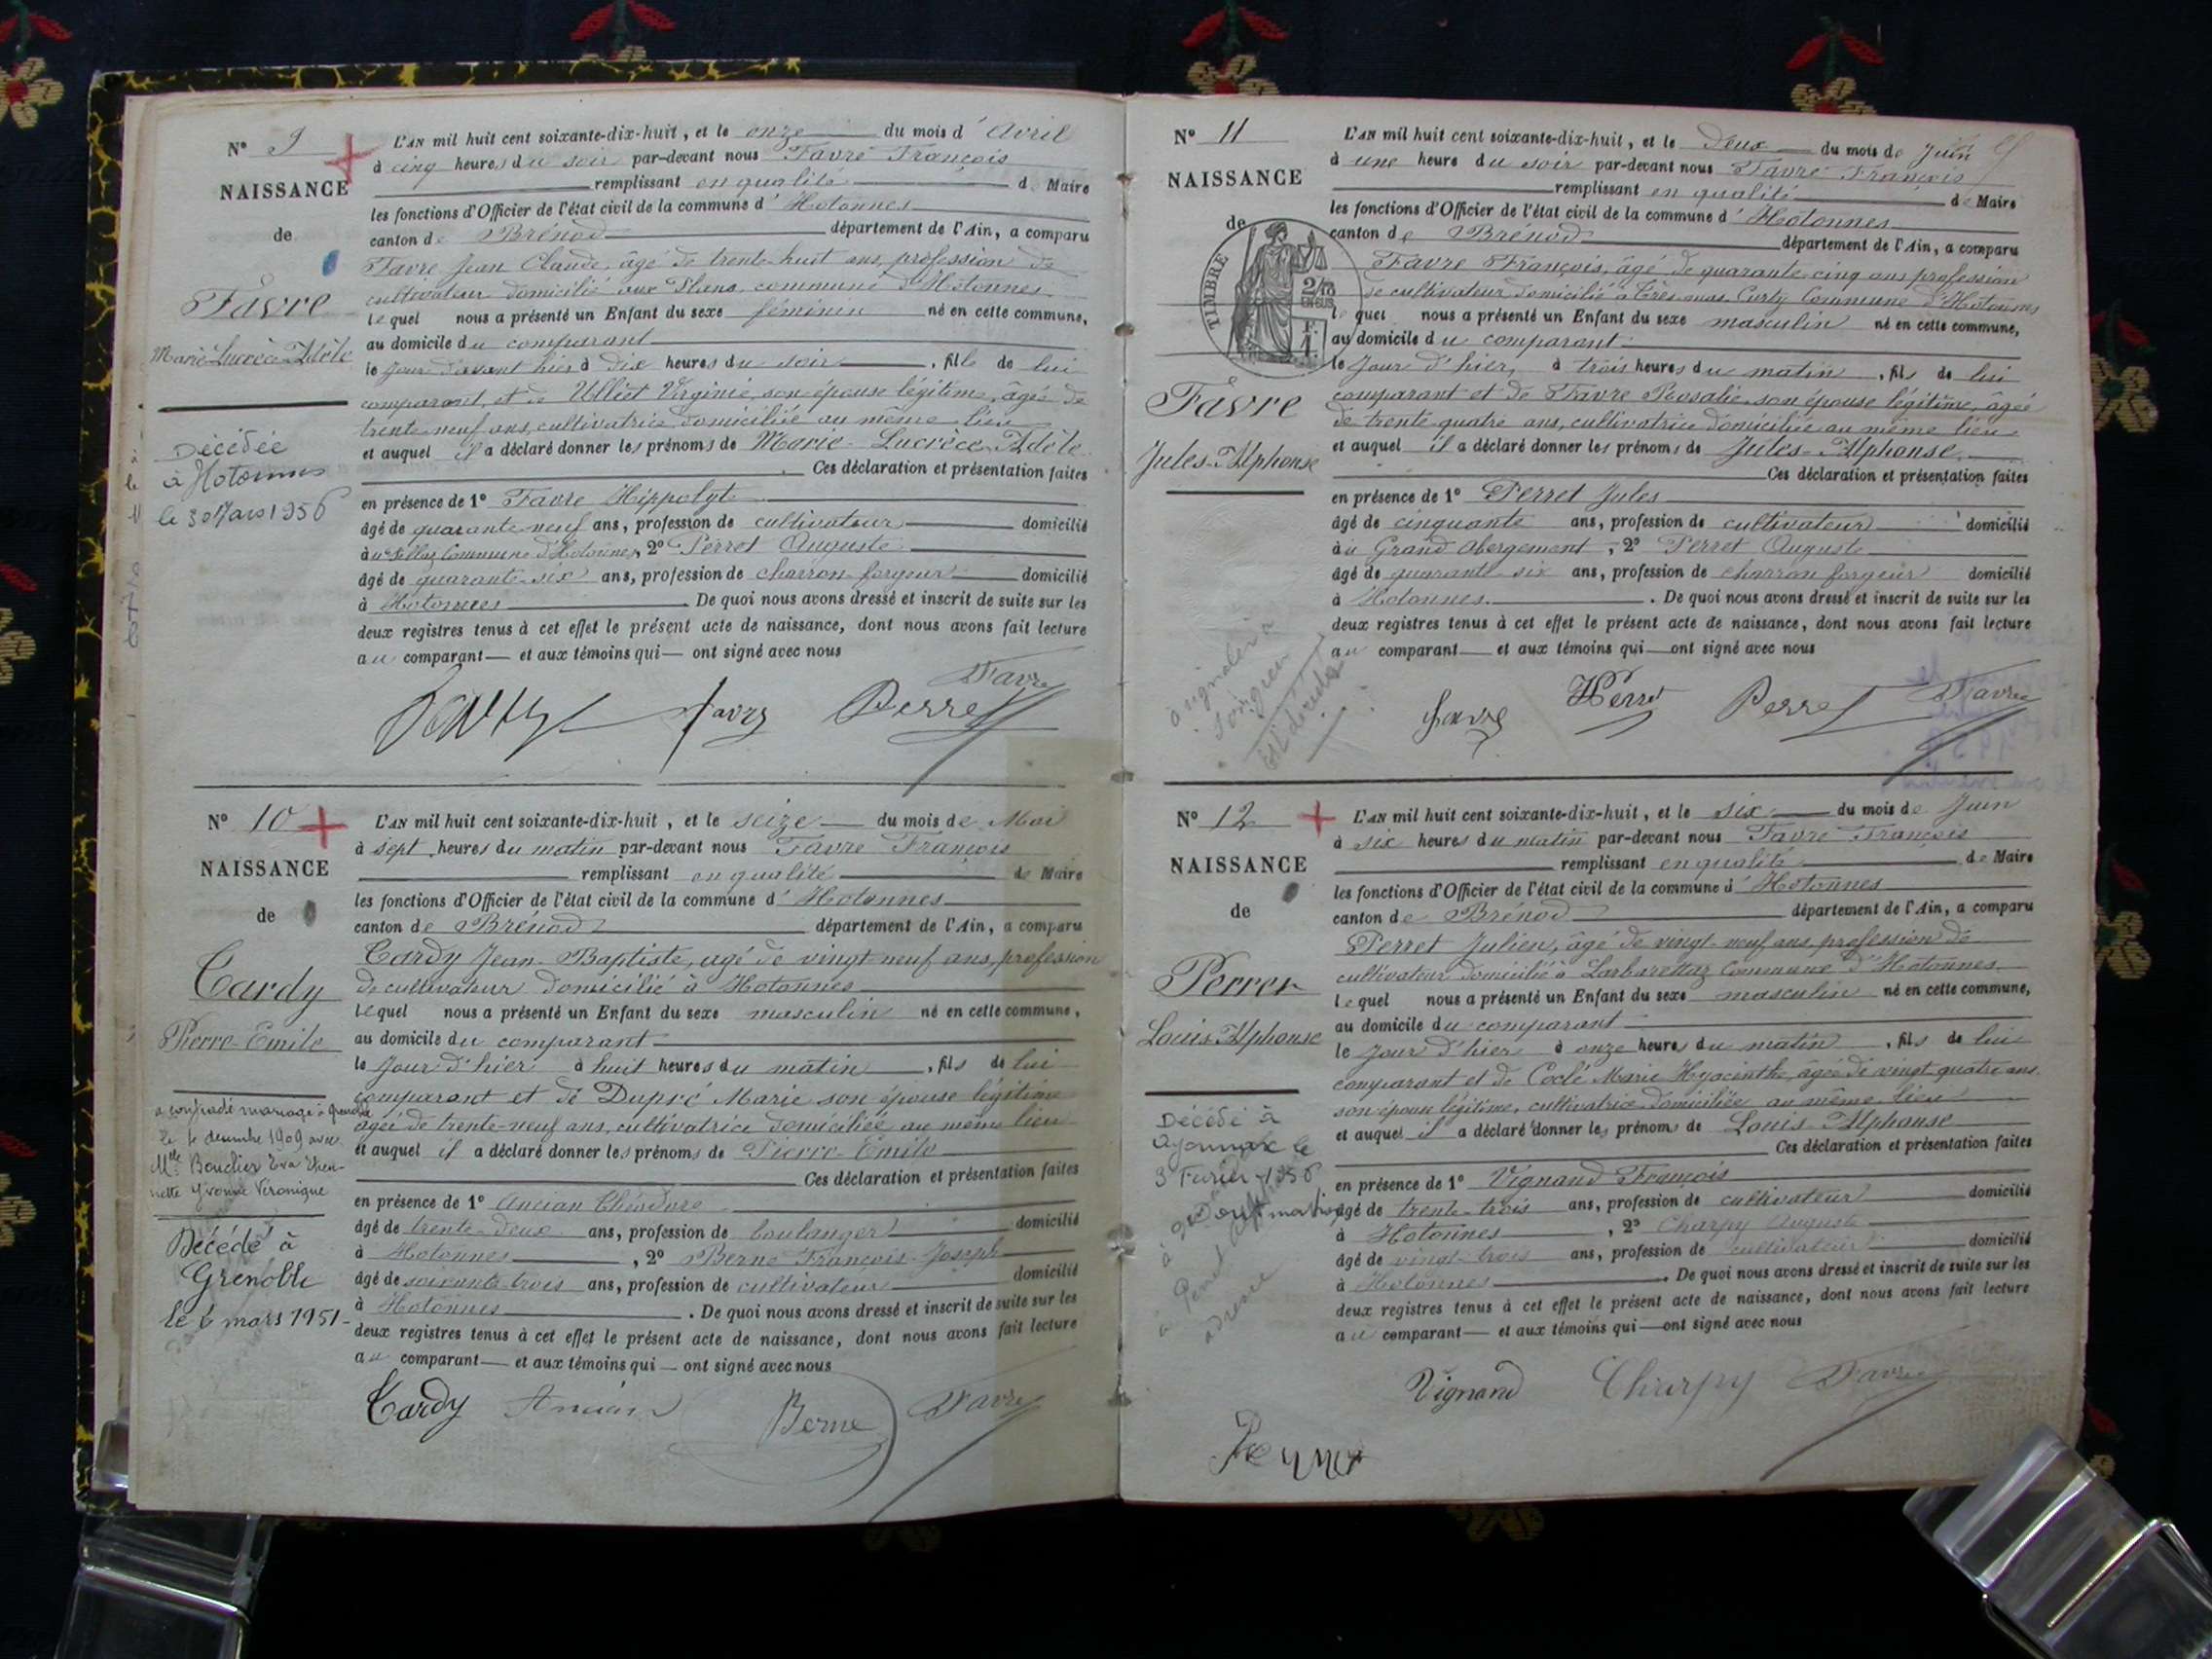 N° 9
NAISSANCE
de
Favre
Marie-Lucrèce-Adèle
Décédée
à Hotonnes
le 30 Mars 1956
L'AN mil huit cent soixante-dix-huit, et le onze du mois d' Avril
à cinq heures du soir par-devant nous Favre François
remplissant en qualité de Maire
les fonctions d'Officier de l'état civil de la commune d' Hotonnes
canton de Brénod département de l'Ain, a comparu
Favre Jean Claude, âgé de trente-huit ans, profession de
cultivateur domicilié aux Plans, commune d'Hotonnes
lequel nous a présenté un Enfant du sexe féminin né en cette commune,
au domicile du comparant
le jour d'avant hier à dix heures du soir, fille de lui
comparant, et de Ulliet Virginie, son épouse légitime, âgée de
trente neuf ans, cultivatrice domiciliée au même lieu
et auquel il a déclaré donner les prénoms de Marie-Lucrèce-Adèle.
Ces déclaration et présentation faites
en présence de 1° Favre Hippolyte
âgé de quarante-neuf ans, profession de cultivateur domicilié
commune d'Hotonnes, 2° Perret Auguste
âgé de quarante-six ans, profession de charron-forgeur domicilié
à Hotonnes. De quoi nous avons dressé et inscrit de suite sur les
deux registres tenus à cet effet le présent acte de naissance, dont nous avons fait lecture
au comparant — et aux témoins qui — ont signé avec nous
Favre
Favre Perret
N° 10
NAISSANCE
de
Tardy
Pierre-Emile
a contracté mariage à Grenoble
le 1e décembre 1909 avec
Mlle Bouclier Eva
Yvonne Véronique
Décédé à
Grenoble
le 6 mars 1951-
L'AN mil huit cent soixante-dix-huit, et le seize du mois de Mai
à sept heures du matin par-devant nous Favre François
remplissant en qualité de Maire
les fonctions d'Officier de l'état civil de la commune d' Hotonnes
canton de Brénod département de l'Ain, a comparu
Tardy Jean-Baptiste, âgé de vingt-neuf ans, profession
de cultivateur domicilié à Hotonnes
lequel nous a présenté un Enfant du sexe masculin né en cette commune,
au domicile du comparant
le jour d'hier à huit heures du matin, fils de lui
comparant et de Dupré Marie son épouse légitime
âgée de trente-neuf ans, cultivatrice domiciliée au même lieu
et auquel il a déclaré donner les prénoms de Pierre-Emile
Ces déclaration et présentation faites
en présence de 1° Ancian Théodore
âgé de trente-deux ans, profession de boulanger domicilié
à Hotonnes, 2° Berne François-Joseph
âgé de soixante-trois ans, profession de cultivateur domicilié
à Hotonnes. De quoi nous avons dressé et inscrit de suite sur les
deux registres tenus à cet effet le présent acte de naissance, dont nous avons fait lecture
au comparant — et aux témoins qui — ont signé avec nous
Tardy Ancian Berne Favre
N° 11
NAISSANCE
de
TIMBRE
2/10
EN SUS
Favre
Jules-Alphonse
L'AN mil huit cent soixante-dix-huit, et le deux du mois de Juin
à une heure du soir par-devant nous Favre François
remplissant en qualité de Maire
les fonctions d'Officier de l'état civil de la commune d' Hotonnes
canton de Brénod département de l'Ain, a comparu
Favre François, âgé de quarante-cinq ans profession
de cultivateur domicilié à Commune d'Hotonnes
lequel nous a présenté un Enfant du sexe masculin né en cette commune,
au domicile du comparant
le jour d'hier, à trois heures du matin, fils de lui
comparant et de Favre Rosalie son épouse légitime, âgée
de trente-quatre ans, cultivatrice domiciliée au même lieu
et auquel il a déclaré donner les prénoms de Jules-Alphonse.
Ces déclaration et présentation faites
en présence de 1° Perret Jules
âgé de cinquante ans, profession de cultivateur domicilié
au Grand Abergement, 2° Perret Auguste
âgé de quarante-six ans, profession de charron forgeur domicilié
à Hotonnes. De quoi nous avons dressé et inscrit de suite sur les
deux registres tenus à cet effet le présent acte de naissance, dont nous avons fait lecture
au comparant — et aux témoins qui — ont signé avec nous
Favre Perret Perret Favre
N° 12
NAISSANCE
de
Perret
Louis-Alphonse
Décédé à
Oyonnax le
3 Février 1956
L'AN mil huit cent soixante-dix-huit, et le six du mois de Juin
à six heures du matin par-devant nous Favre François
remplissant en qualité de Maire
les fonctions d'Officier de l'état civil de la commune d' Hotonnes
canton de Brénod département de l'Ain, a comparu
Perret Julien, âgé de vingt-neuf ans, profession de
cultivateur domicilié à Commune d'Hotonnes
lequel nous a présenté un Enfant du sexe masculin né en cette commune,
au domicile du comparant
le jour d'hier à onze heures du matin, fils de lui
comparant et de Coclé Marie Hyacinthe, âgée de vingt quatre ans
son épouse légitime, cultivatrice domiciliée au même lieu
et auquel il a déclaré donner les prénoms de Louis-Alphonse
Ces déclaration et présentation faites
en présence de 1° Vignand François
âgé de trente-trois ans, profession de cultivateur domicilié
à Hotonnes, 2° Charpy Auguste
âgé de vingt-trois ans, profession de cultivateur domicilié
à Hotonnes. De quoi nous avons dressé et inscrit de suite sur les
deux registres tenus à cet effet le présent acte de naissance, dont nous avons fait lecture
au comparant — et aux témoins qui — ont signé avec nous
Vignand Charpy Favre
Perret